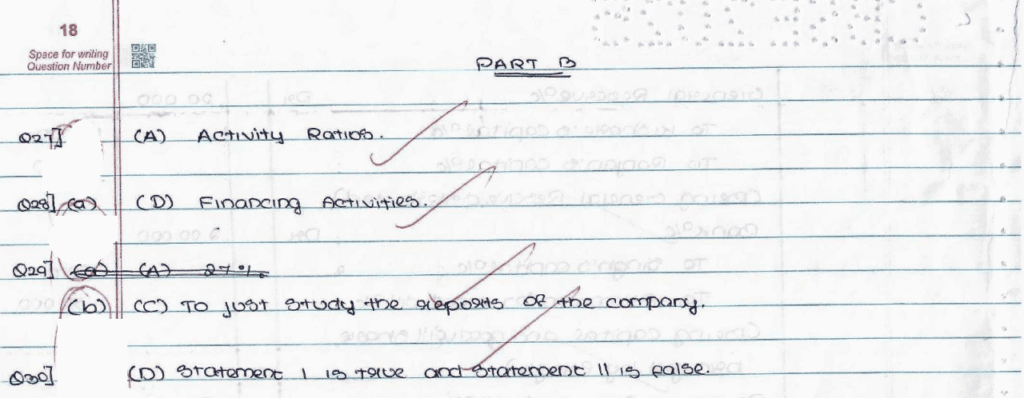 18
Space for writing
Question Number
PART B
Q27] (A) Activity Ratios.
Q28] (a) (D) Financing Activities.
Q29] (a) (A) 27%
(b) (C) To just study the reports of the company.
Q30] (D) Statement I is true and Statement II is false.